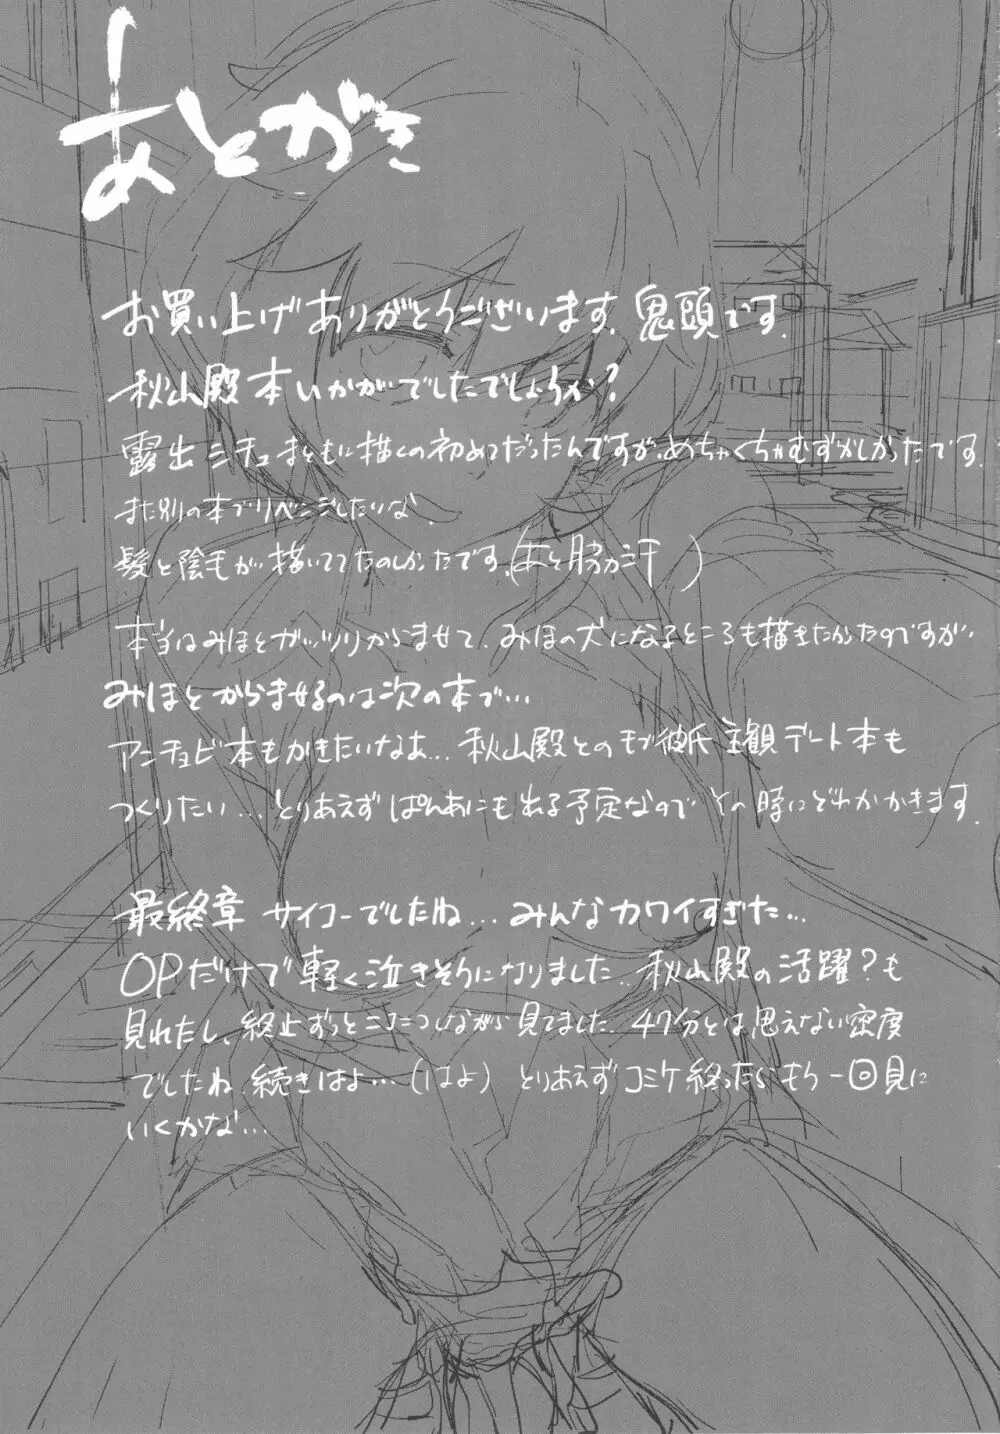 あとがき
お買い上げありがとうございます。鬼頭です。
秋山殿本いかがでしたでしょうか?
露出シチュまともに描くの初めてだったんですが、めちゃくちゃむずかしかったです。
また別の本でリベンジしたいな。
髪と陰毛が描いててたのしかたです。(あと脇か汗)
本当はみほとガッツリからませて、みほの犬になるところも描きたかたのですが、
みほとからませるのは次の本で…
アンチョビ本もかきたいなぁ…秋山殿とのモブ彼氏主観デート本も
つくりたい…とりあえずぱんあにも出る予定なのでその時にどれかかきます。
最終章 サイコーでしたね…みんなカワイすぎた…
OPだけで軽く泣きそうになりました。秋山殿の活躍?も
見れたし、終止ずっとニコニコしながら見てました。47分とは思えない密度
でしたね。続きはよ…(はよ)とりあえずコミケ終ったらもう一回見に
いくかな…